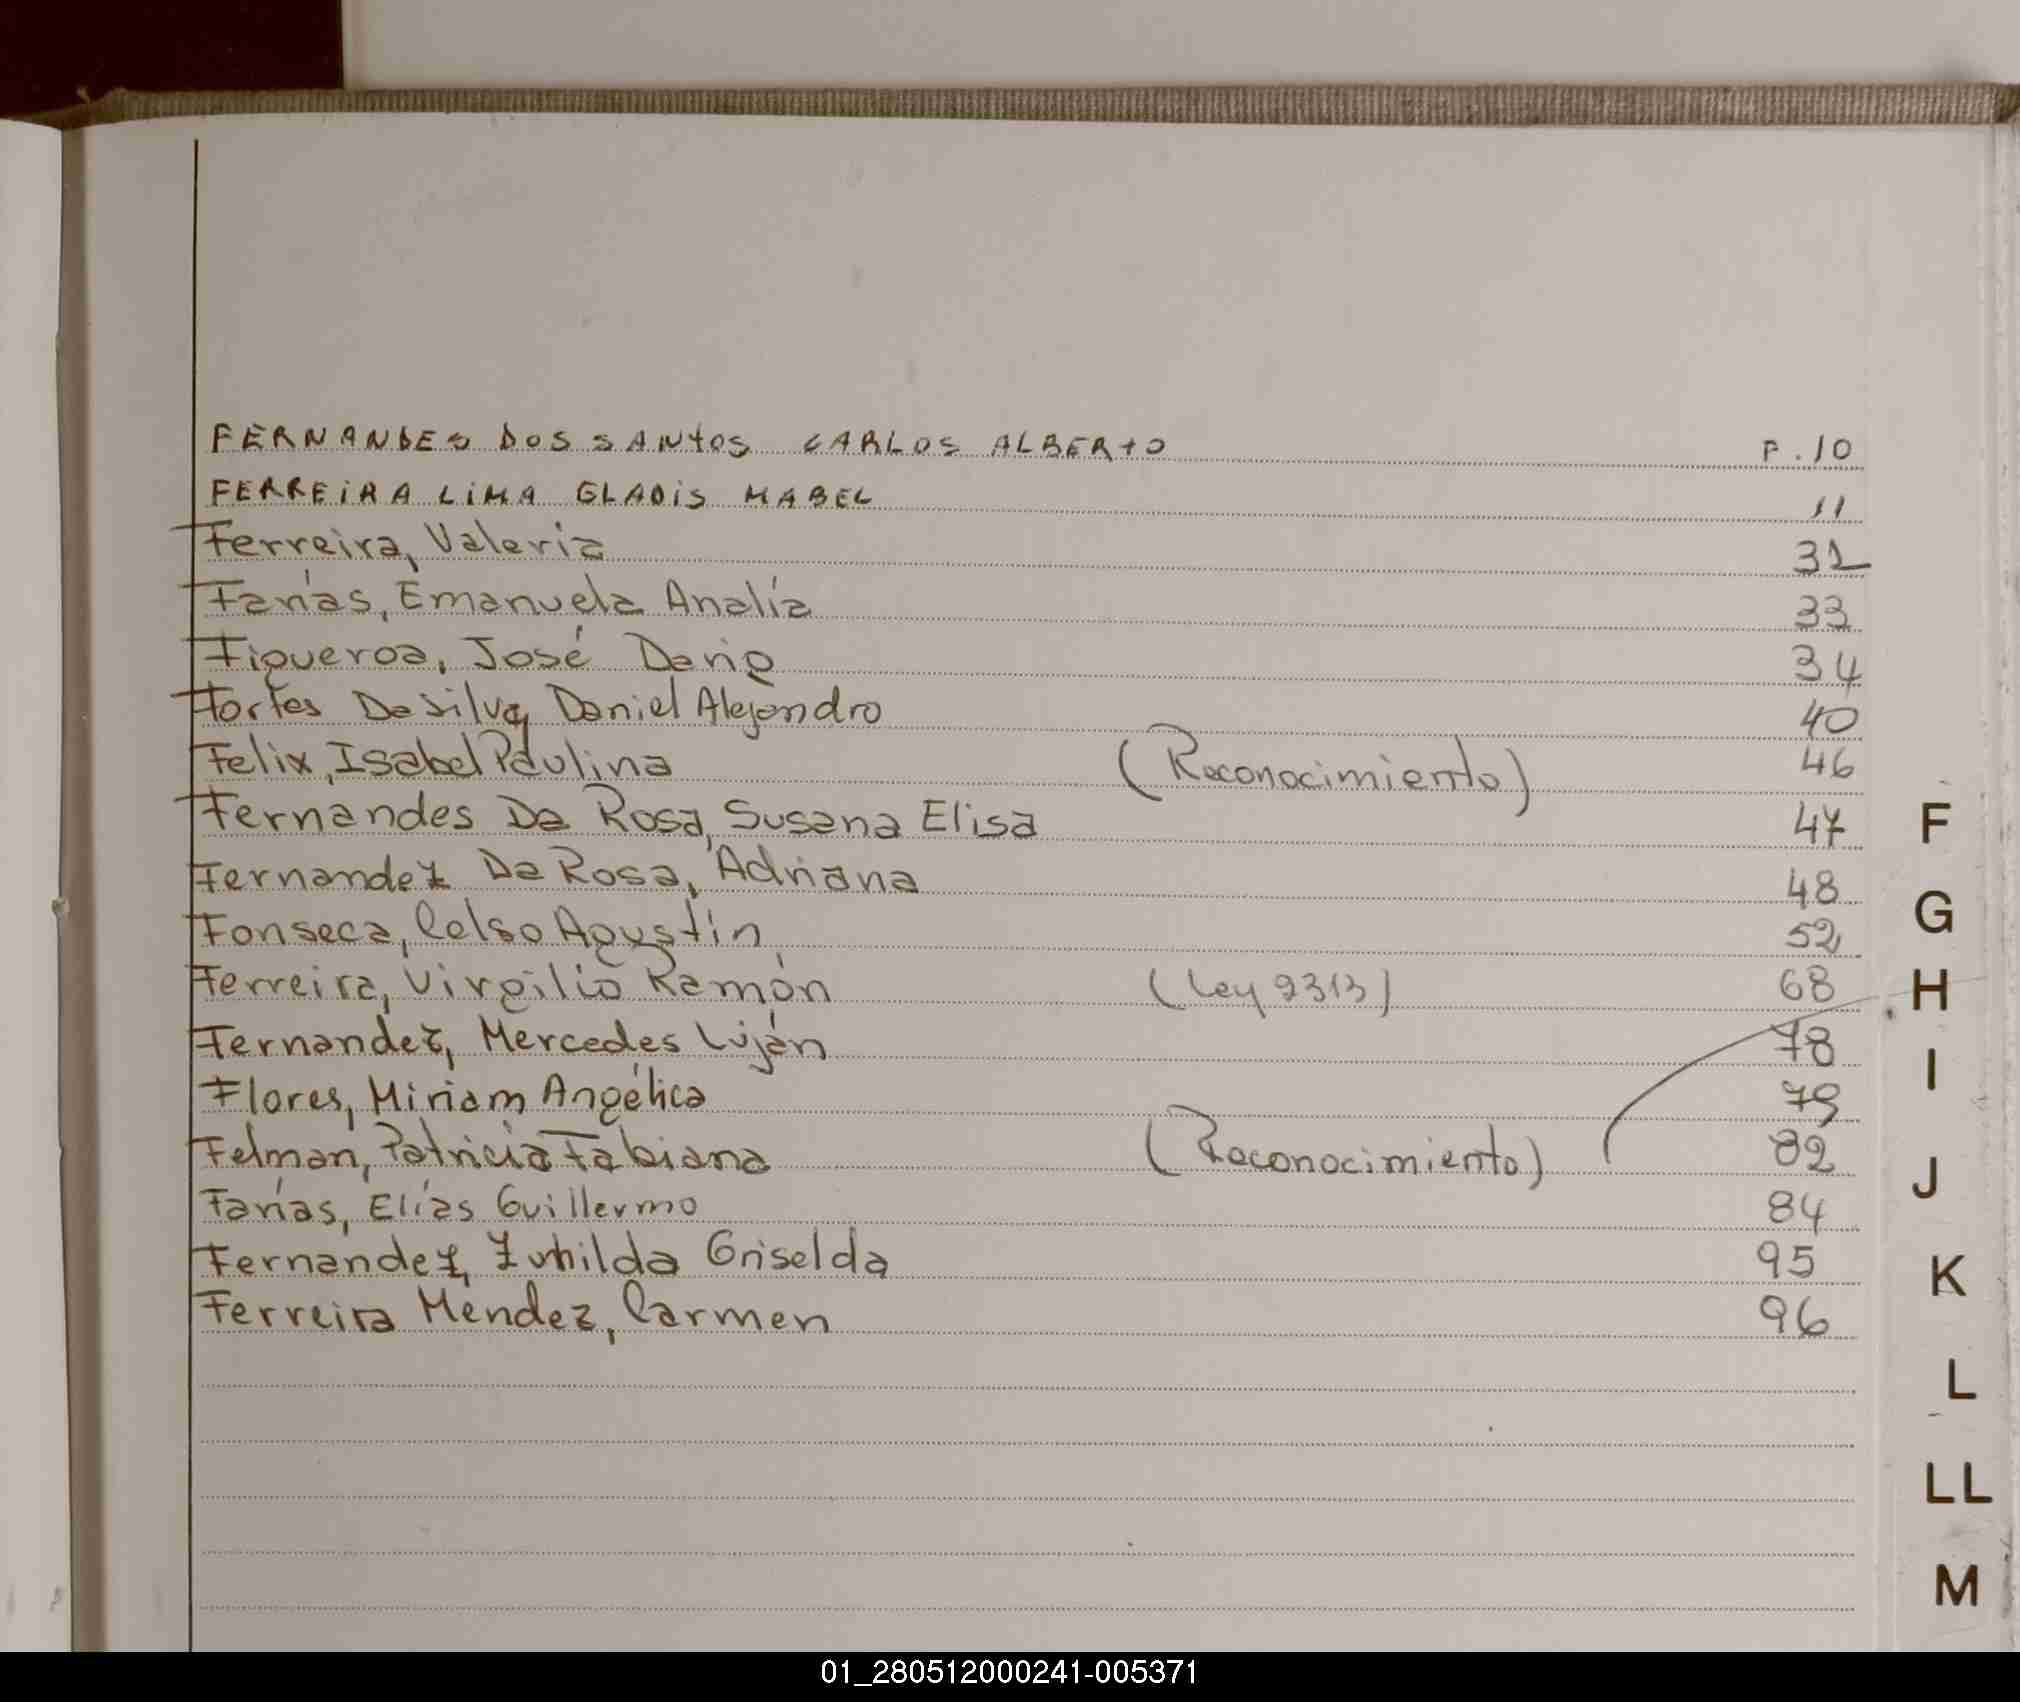 FERNANDES DOS SANTOS CARLOS ALBERTO F. 10
FERREIRA LIMA GLADIS MABEL 11
Ferreira, Valeria 32
Farías, Emanuela Analía 33
Figueroa, José Dario 34
Fortes Da Silva, Daniel Alejandro 40
Felix, Isabel Paulina (Reconocimiento) 46
Fernandes Da Rosa, Susana Elisa 47
Fernandez Da Rosa, Adriana 48
Fonseca, Celso Agustín 52
Ferreira, Virgilio Ramón (Ley 2313) 68
Fernandez, Mercedes Luján 78
Flores, Miriam Angélica 79
Felman, Patricia Fabiana (Reconocimiento) 82
Farías, Elías Guillermo 84
Fernandez, Zunilda Griselda 95
Ferreira Méndez, Carmen 96
F
G
H
I
J
K
L
LL
M
01_280512000241-005371